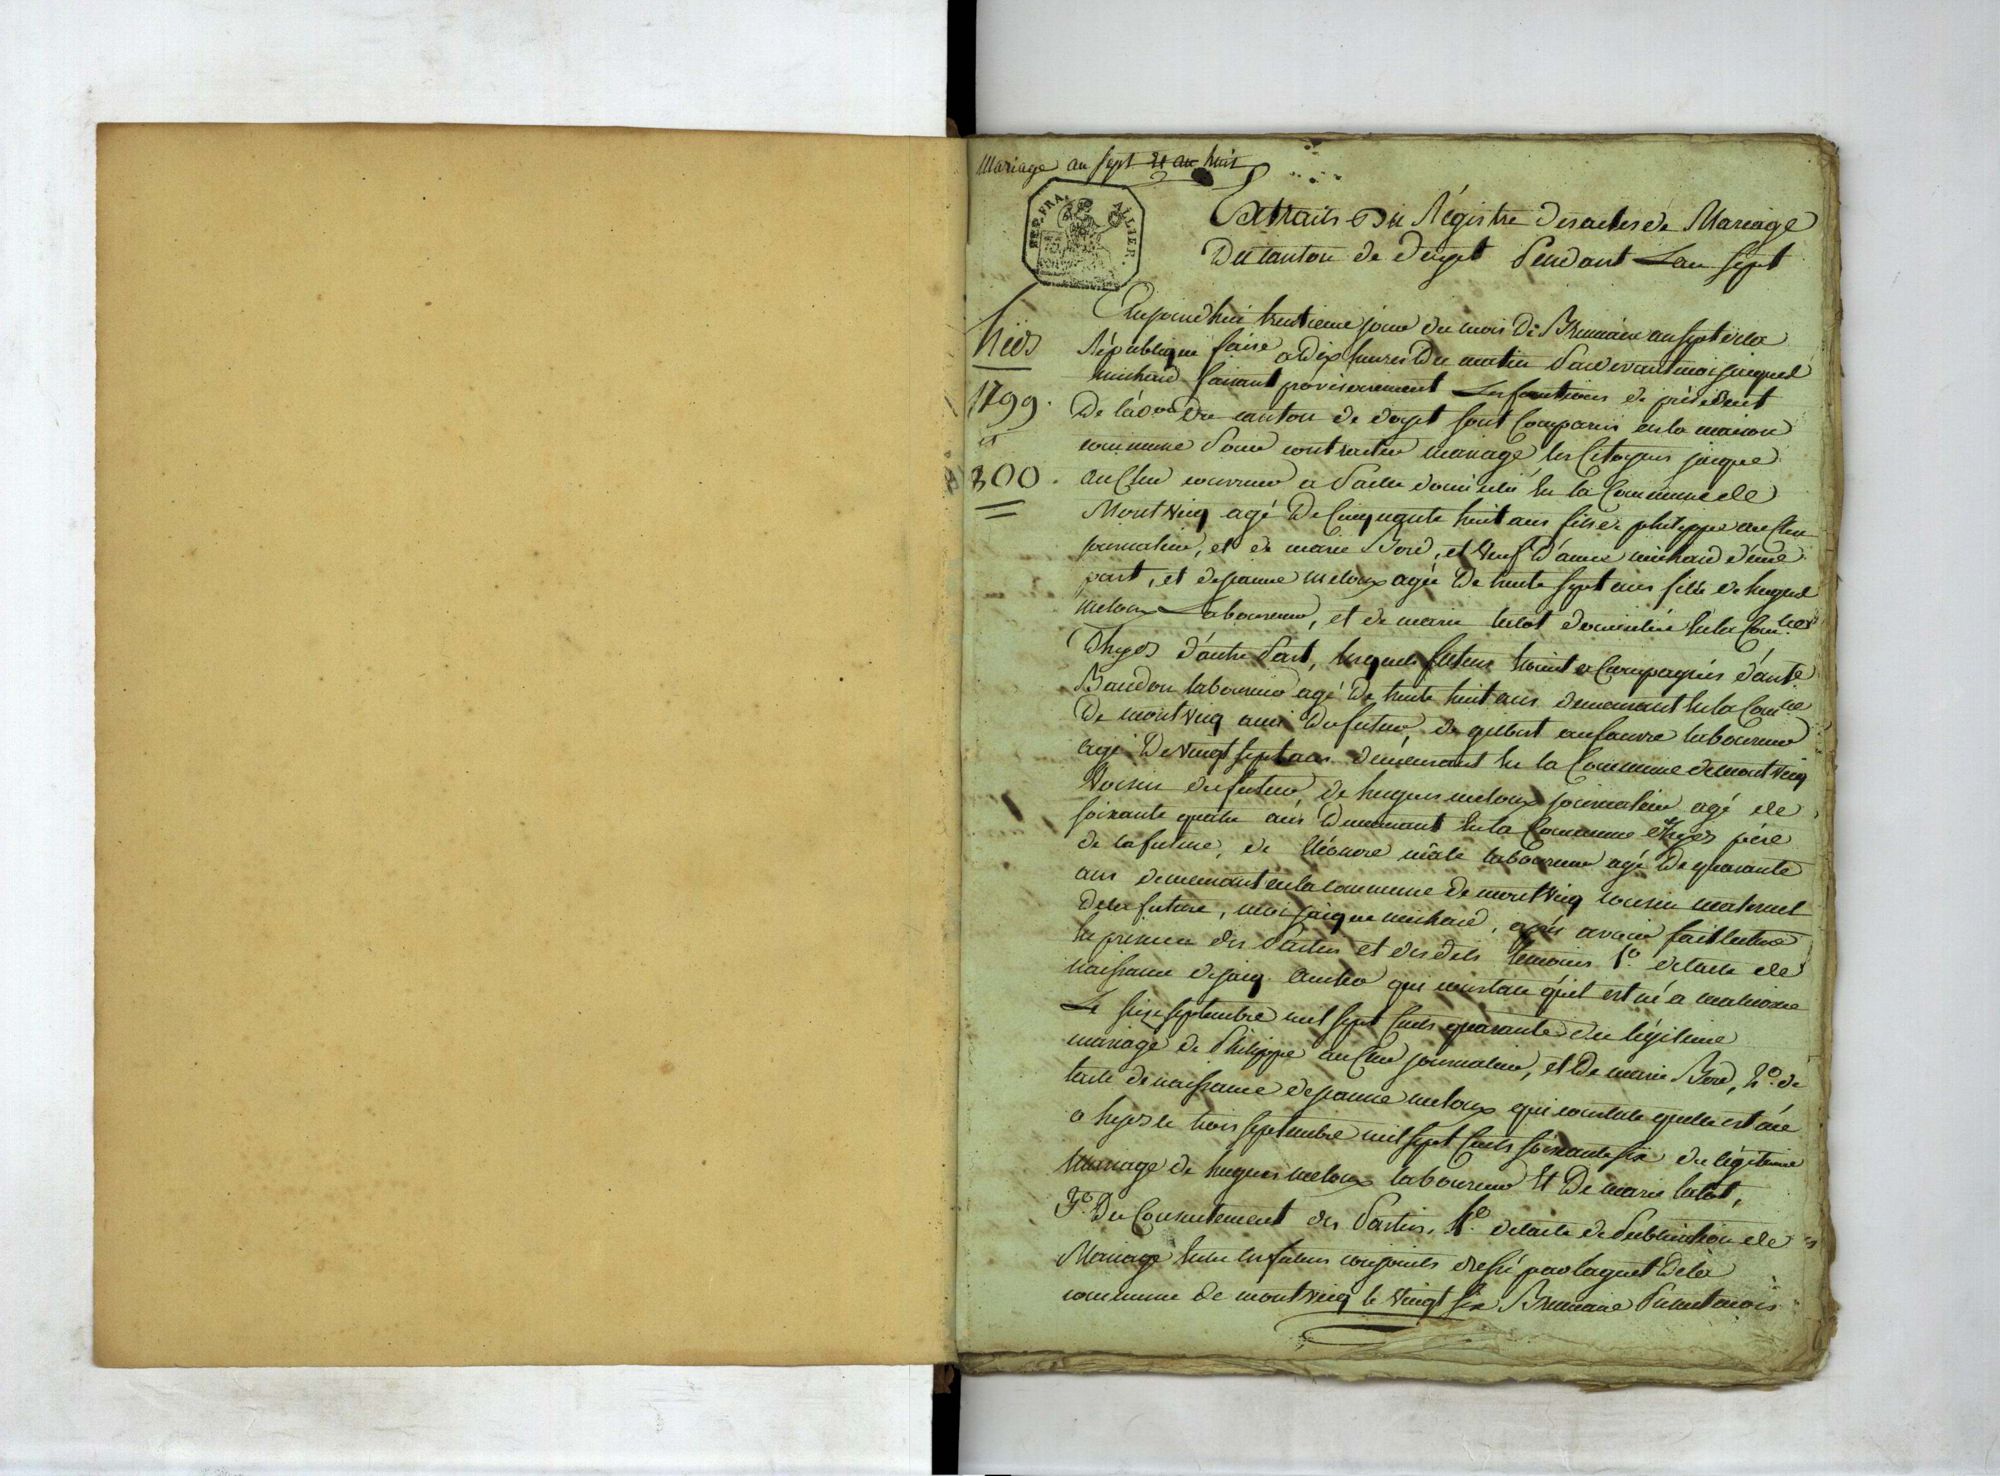 Mariage an sept et an huit
REP. FRA. ALLIER.
Extraits Du Régistre des actes de Mariage
Du canton de doyet Pendant Lan sept
hids
1799.
et
800.
Aujourdhui trentieme jour du mois De Brumaire an sept de la
République faise a Dix heures Du matin Pardevant moi jacques
michard faisant provisoirement Les fonctions de président
De l'adon du canton de doyet sont Comparus en la maison
commune Pour contracter mariage les Citoyens jacque
auclair couvreur a Paille domicilié En la Commune de
Montvicq agé De Cinquante huit ans fils de philippe auclair
journalier, et de marie Bord, et veuf D'anne michard d'une
part, et de jeanne meloux agée De trente sept ans fille de hugues
meloux Laboureur, et de marie talot domiciliée En la Comne
Dhyds d'autre Part, lesquels futurs Etoient accompagnés d'ante
Baudon laboureur agé De trente huit ans demeurant En la Comne
De montvicq ami Du futur, de gilbert aufauvre laboureur
agé De vingt sept ans demeurant En la Commune de montvicq
Voisin du futur, de hugues meloux journalier agé de
soixante quatre ans Demeurant En la Commune dhyds pére
de la future, de Eléonore mâle laboureur agé De quarante
ans demeurant en la commune De montvicq cousin maternel
De la future, moi jacque michard, aprés avoir fait lecture
En presence des Parties et des dits temoins 1o. de lacte de
naissance de jacq. auclair qui constate qu'il est né a malicorne
Le six septembre mil sept Cents quarante du légitime
mariage de Philippe auclair journalier, et De marie Bord, 2o. de
lacte de naissance de jeanne meloux qui constate quelle est née
a hyds le trois septembre mil sept Cents soixante six du légitime
Mariage de hugues meloux laboureur Et De marie talot,
3o. Du Consentement des Parties, 4o. de lacte de Publication de
Mariage Entre les futurs conjoints dressé par lagent De la
commune de montvicq le vingt six Brumaire Présent mois